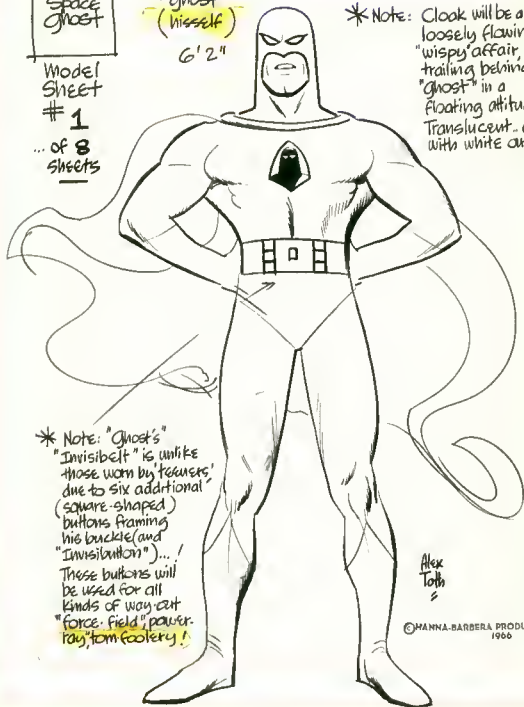 Space
Ghost
Model
Sheet
# 1
... of 8
sheets
"Ghost"
(hisself)
6' 2"
* Note: Cloak will be a
loosely flowin
"wispy" affair,
trailing behin
"ghost" in a
floating attitu
Translucent..
with white ou
* Note: "Ghost's"
"Invisibelt" is unlike
those worn by 'teeners'
due to six additional
(square-shaped)
buttons framing
his buckle (and
"Invisibutton")... !
These buttons will
be used for all
kinds of way-out
"force-field", power-
ray", tom-foolery!
Alex
Toth
© HANNA-BARBERA PRODU
1966